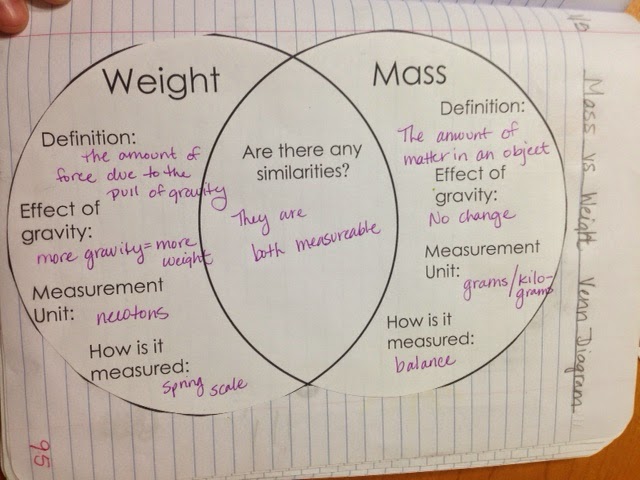 Weight
Definition:
the amount of
force due to the
pull of gravity
Effect of
gravity:
more gravity = more
weight
Measurement
Unit: newtons
How is it
measured:
spring scale
Are there any
similarities?
They are
both measureable
Mass
Definition:
The amount of
matter in an object
Effect of
gravity:
No change
Measurement
Unit:
grams/kilo-
grams
How is it
measured:
balance
Mass vs Weight Venn Diagram
95